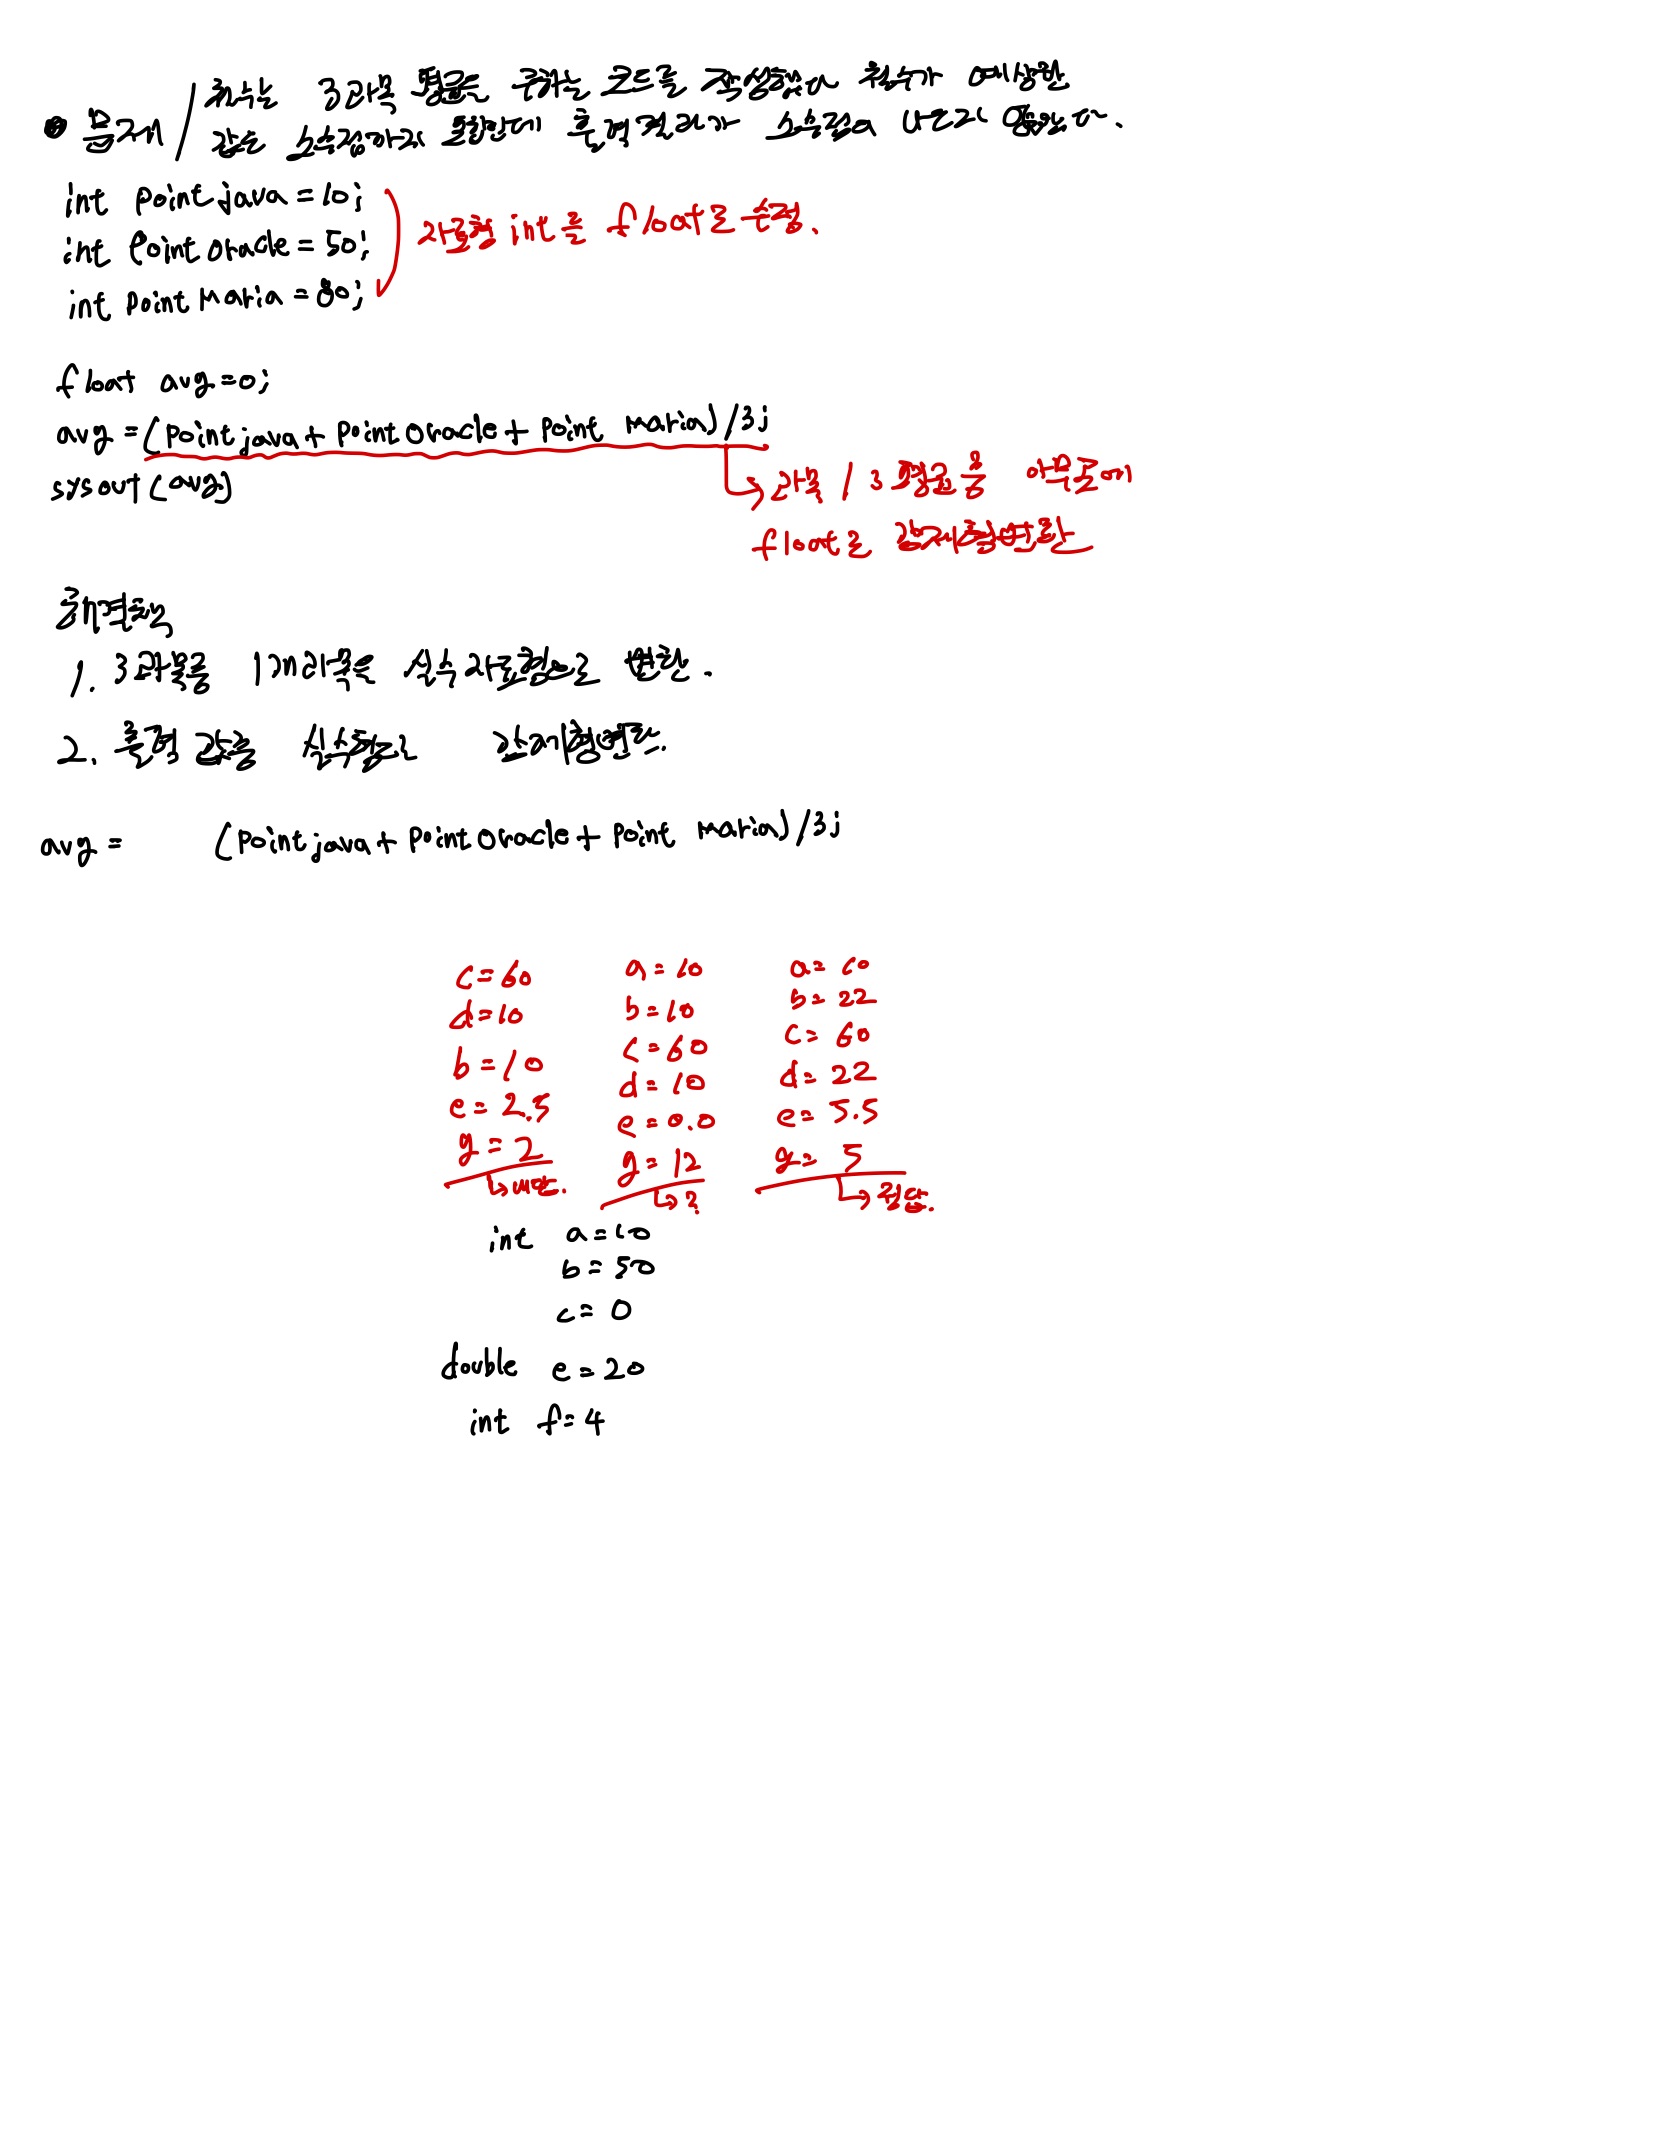 문제 / 철수는 3과목 평균을 구하는 코드를 작성했다 철수가 예상한
값은 소수점까지 포함인데 출력결과가 소수점이 나오지 않았다.
int point java = 10;
int Point oracle = 50;
int point Maria = 80;
자료형 int를 float로 수정.
float avg = 0;
avg = (point java + point oracle + point maria) / 3;
sysout (avg)
과목 / 3 평균중 아무곳에
float로 강제형변환
해결책
1. 3과목중 1개과목은 실수자료형으로 변환.
2. 출력 값을 실수형으로 강제형변환.
avg = (point java + point oracle + point maria) / 3;
c = 60 a = 10 a = 10
d = 10 b = 10 b = 22
b = 10 c = 60 c = 60
e = 2.5 d = 10 d = 22
g = 2 e = 0.0 e = 5.5
g = 12 g = 5
↳ 내답. ↳ ? ↳ 정답.
int a = 10
b = 50
c = 0
double e = 20
int f = 4